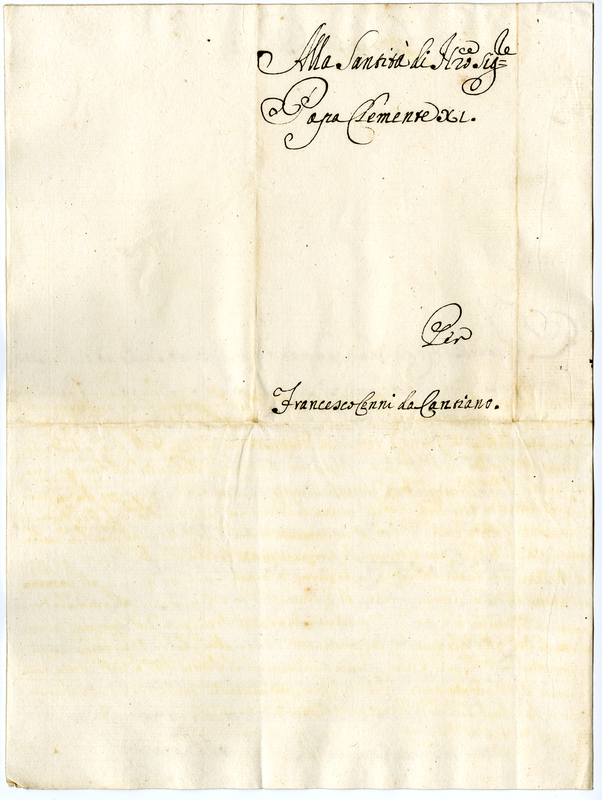 Alla Santità di Nro Sigre
Papa Clemente XI.
Per
Francesco Cenni da Cantiano.